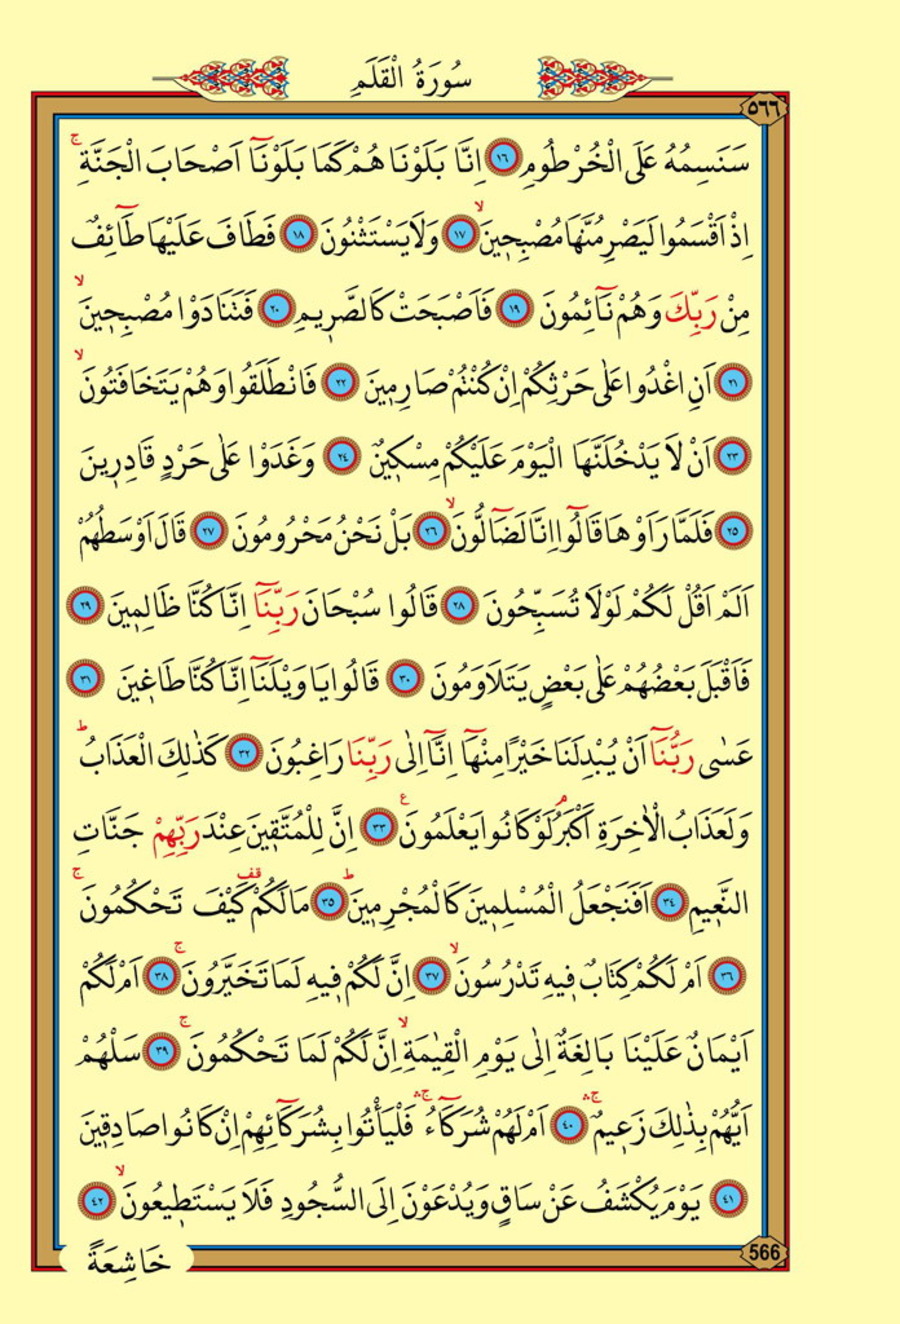 سُورَةُ الْقَلَمِ
٥٦٦
سَنَسِمُهُ عَلَى الْخُرْطُومِ ١٦ اِنَّا بَلَوْنَا هُمْ كَمَا بَلَوْنَٓا اَصْحَابَ الْجَنَّةِۚ
اِذْ اَقْسَمُوا لَيَصْرِمُنَّهَا مُصْبِح۪ينَۙ ١٧ وَلَا يَسْتَثْنُونَ ١٨ فَطَافَ عَلَيْهَا طَٓائِفٌ
مِنْ رَبِّكَ وَهُمْ نَٓائِمُونَ ١٩ فَاَصْبَحَتْ كَالصَّر۪يمِ ٢٠ فَتَنَادَوْا مُصْبِح۪ينَۙ
٢١ اَنِ اغْدُوا عَلٰى حَرْثِكُمْ اِنْ كُنْتُمْ صَارِم۪ينَ ٢٢ فَانْطَلَقُوا وَهُمْ يَتَخَافَتُونَۙ
٢٣ اَنْ لَا يَدْخُلَنَّهَا الْيَوْمَ عَلَيْكُمْ مِسْك۪ينٌ ٢٤ وَغَدَوْا عَلٰى حَرْدٍ قَادِر۪ينَ
٢٥ فَلَمَّا رَاَوْهَا قَالُٓوا اِنَّا لَضَٓالُّونَۙ ٢٦ بَلْ نَحْنُ مَحْرُومُونَ ٢٧ قَالَ اَوْسَطُهُمْ
اَلَمْ اَقُلْ لَكُمْ لَوْلَا تُسَبِّحُونَ ٢٨ قَالُوا سُبْحَانَ رَبِّنَٓا اِنَّا كُنَّا ظَالِم۪ينَ ٢٩
فَاَقْبَلَ بَعْضُهُمْ عَلٰى بَعْضٍ يَتَلَاوَمُونَ ٣٠ قَالُوا يَا وَيْلَنَٓا اِنَّا كُنَّا طَاغ۪ينَ ٣١
عَسٰى رَبُّنَٓا اَنْ يُبْدِلَنَا خَيْرًا مِنْهَٓا اِنَّٓا اِلٰى رَبِّنَا رَاغِبُونَ ٣٢ كَذٰلِكَ الْعَذَابُۜ
وَلَعَذَابُ الْاٰخِرَةِ اَكْبَرُۢ لَوْ كَانُوا يَعْلَمُونَ۟ ٣٣ اِنَّ لِلْمُتَّق۪ينَ عِنْدَ رَبِّهِمْ جَنَّاتِ
النَّع۪يمِ ٣٤ اَفَنَجْعَلُ الْمُسْلِم۪ينَ كَالْمُجْرِم۪ينَۜ ٣٥ مَا لَكُمْ۠ كَيْفَ تَحْكُمُونَۚ
٣٦ اَمْ لَكُمْ كِتَابٌ ف۪يهِ تَدْرُسُونَۙ ٣٧ اِنَّ لَكُمْ ف۪يهِ لَمَا تَخَيَّرُونَۚ ٣٨ اَمْ لَكُمْ
اَيْمَانٌ عَلَيْنَا بَالِغَةٌ اِلٰى يَوْمِ الْقِيٰمَةِۙ اِنَّ لَكُمْ لَمَا تَحْكُمُونَۚ ٣٩ سَلْهُمْ
اَيُّهُمْ بِذٰلِكَ زَع۪يمٌۚۛ ٤٠ اَمْ لَهُمْ شُرَكَٓاءُۚۛ فَلْيَأْتُوا بِشُرَكَٓائِهِمْ اِنْ كَانُوا صَادِق۪ينَ
٤١ يَوْمَ يُكْشَفُ عَنْ سَاقٍ وَيُدْعَوْنَ اِلَى السُّجُودِ فَلَا يَسْتَط۪يعُونَۙ ٤٢
خَاشِعَةً
566